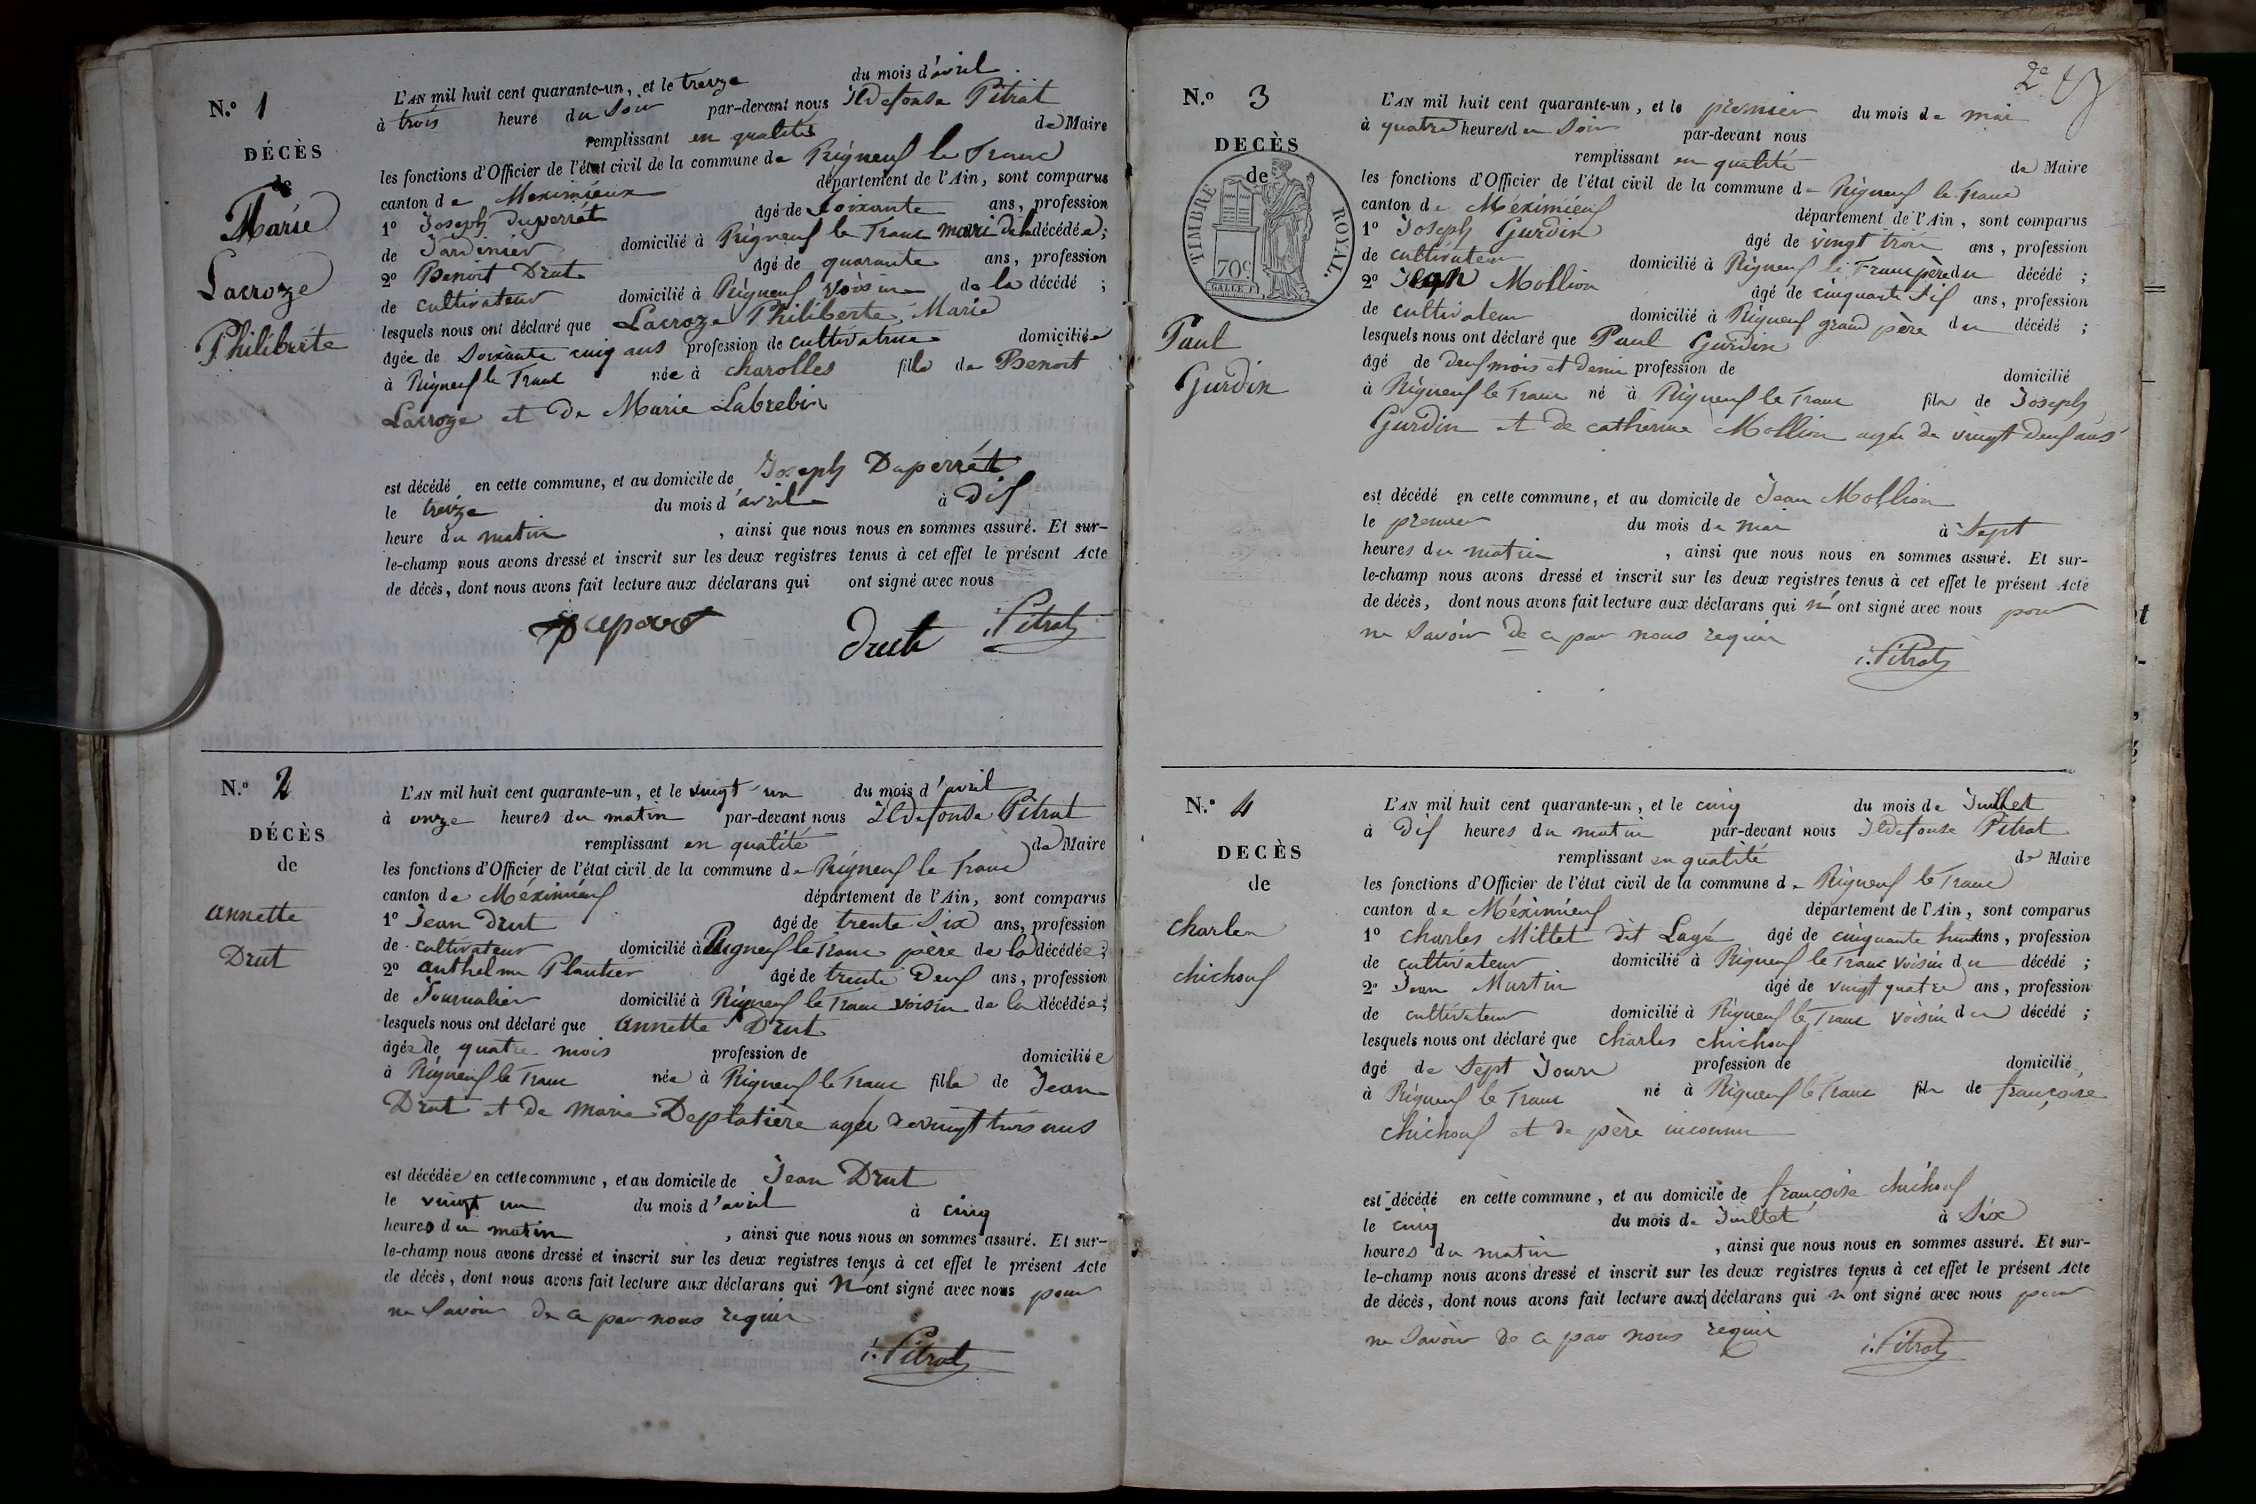 N.º 1
DÉCÈS
de
Marie
Lacroze
Philiberte
L'AN mil huit cent quarante-un, et le treize du mois d'avril
à trois heure du Soir par-devant nous Ildefonse Pitrat
remplissant en qualité de Maire
les fonctions d'Officier de l'état civil de la commune de Rigneux le Franc
canton de Meximieux département de l'Ain, sont comparus
1º Joseph Duperrét âgé de Soixante ans, profession
de Jardinier domicilié à Rigneux le Franc mari de la décédée;
2º Benoit Drut âgé de quarante ans, profession
de cultivateur domicilié à Rigneux voisin de la décédé ;
lesquels nous ont déclaré que Lacroze Philiberte Marie
âgée de Soixante cinq ans profession de cultivatrice domiciliée
à Rigneux le Franc née à charolles fille de Benoit
Lacroze et de Marie Labrebin
est décédé en cette commune, et au domicile de Joseph Duperrét
le treize du mois d'avril à Dix
heure du matin , ainsi que nous nous en sommes assuré. Et sur-
le-champ nous avons dressé et inscrit sur les deux registres tenus à cet effet le présent Acte
de décès, dont nous avons fait lecture aux déclarans qui ont signé avec nous
drut i. Pitrat
N.º 2
DÉCÈS
de
annette
Drut
L'AN mil huit cent quarante-un, et le vingt un du mois d'avril
à onze heures du matin par-devant nous Ildefonse Pitrat
remplissant en qualité de Maire
les fonctions d'Officier de l'état civil de la commune de Rigneux le Franc
canton de Méximieux département de l'Ain, sont comparus
1º Jean Drut âgé de trente Six ans, profession
de cultivateur domicilié à Rigneux le Franc père de la décédée ;
2º anthelme Plantier âgé de trente Deux ans, profession
de Journalier domicilié à Rigneux le Franc voisin de la décédée ;
lesquels nous ont déclaré que annette Drut
âgée de quatre mois profession de domiciliée
à Rigneux le Franc née à Rigneux le Franc fille de Jean
Drut et de Marie Deplatière agée de vingt trois ans
est décédée en cette commune, et au domicile de Jean Drut
le vingt un du mois d'avril à cinq
heures du matin , ainsi que nous nous en sommes assuré. Et sur-
le-champ nous avons dressé et inscrit sur les deux registres tenus à cet effet le présent Acte
de décès, dont nous avons fait lecture aux déclarans qui n'ont signé avec nous pour
ne Savoir de ce par nous requis
i. Pitrat
2e
N.º 3
DECÈS
de
TIMBRE ROYAL.
70c.
Paul
Gurdin
L'AN mil huit cent quarante-un, et le premier du mois de mai
à quatre heures du Soir par-devant nous
remplissant en qualité de Maire
les fonctions d'Officier de l'état civil de la commune de Rigneux le Franc
canton de Méximieux département de l'Ain, sont comparus
1º Joseph Gurdin âgé de vingt trois ans, profession
de cultivateur domicilié à Rigneux le Franc père du décédé ;
2º Jean Mollion âgé de cinquante Six ans, profession
de cultivateur domicilié à Rigneux grand père du décédé ;
lesquels nous ont déclaré que Paul Gurdin
âgé de deux mois et demi profession de domicilié
à Rigneux le Franc né à Rigneux le Franc fils de Joseph
Gurdin et de catherine Mollion agée de vingt Deux ans
est décédé en cette commune, et au domicile de Jean Mollion
le premier du mois de mai à Sept
heures du matin , ainsi que nous nous en sommes assuré. Et sur-
le-champ nous avons dressé et inscrit sur les deux registres tenus à cet effet le présent Acte
de décès, dont nous avons fait lecture aux déclarans qui n'ont signé avec nous pour
ne Savoir de ce par nous requis
i. Pitrat
N.º 4
DECÈS
de
Charles
chichoux
L'AN mil huit cent quarante-un, et le cinq du mois de Juillet
à Dix heures du matin par-devant nous Ildefonse Pitrat
remplissant en qualité de Maire
les fonctions d'Officier de l'état civil de la commune de Rigneux le Franc
canton de Méximieux département de l'Ain, sont comparus
1º Charles Millet dit Lagé âgé de cinquante huit ans, profession
de cultivateur domicilié à Rigneux le Franc voisin du décédé ;
2º Jean Martin âgé de vingt quatre ans, profession
de cultivateur domicilié à Rigneux le Franc voisin du décédé ;
lesquels nous ont déclaré que Charles chichoux
âgé de Sept Jours profession de domicilié
à Rigneux le Franc né à Rigneux le Franc fils de françoise
chichoux et de père inconnu
est décédé en cette commune, et au domicile de françoise chichoux
le cinq du mois de Juillet à Six
heures du matin , ainsi que nous nous en sommes assuré. Et sur-
le-champ nous avons dressé et inscrit sur les deux registres tenus à cet effet le présent Acte
de décès, dont nous avons fait lecture aux déclarans qui n'ont signé avec nous pour
ne Savoir de ce par nous requis
i. Pitrat